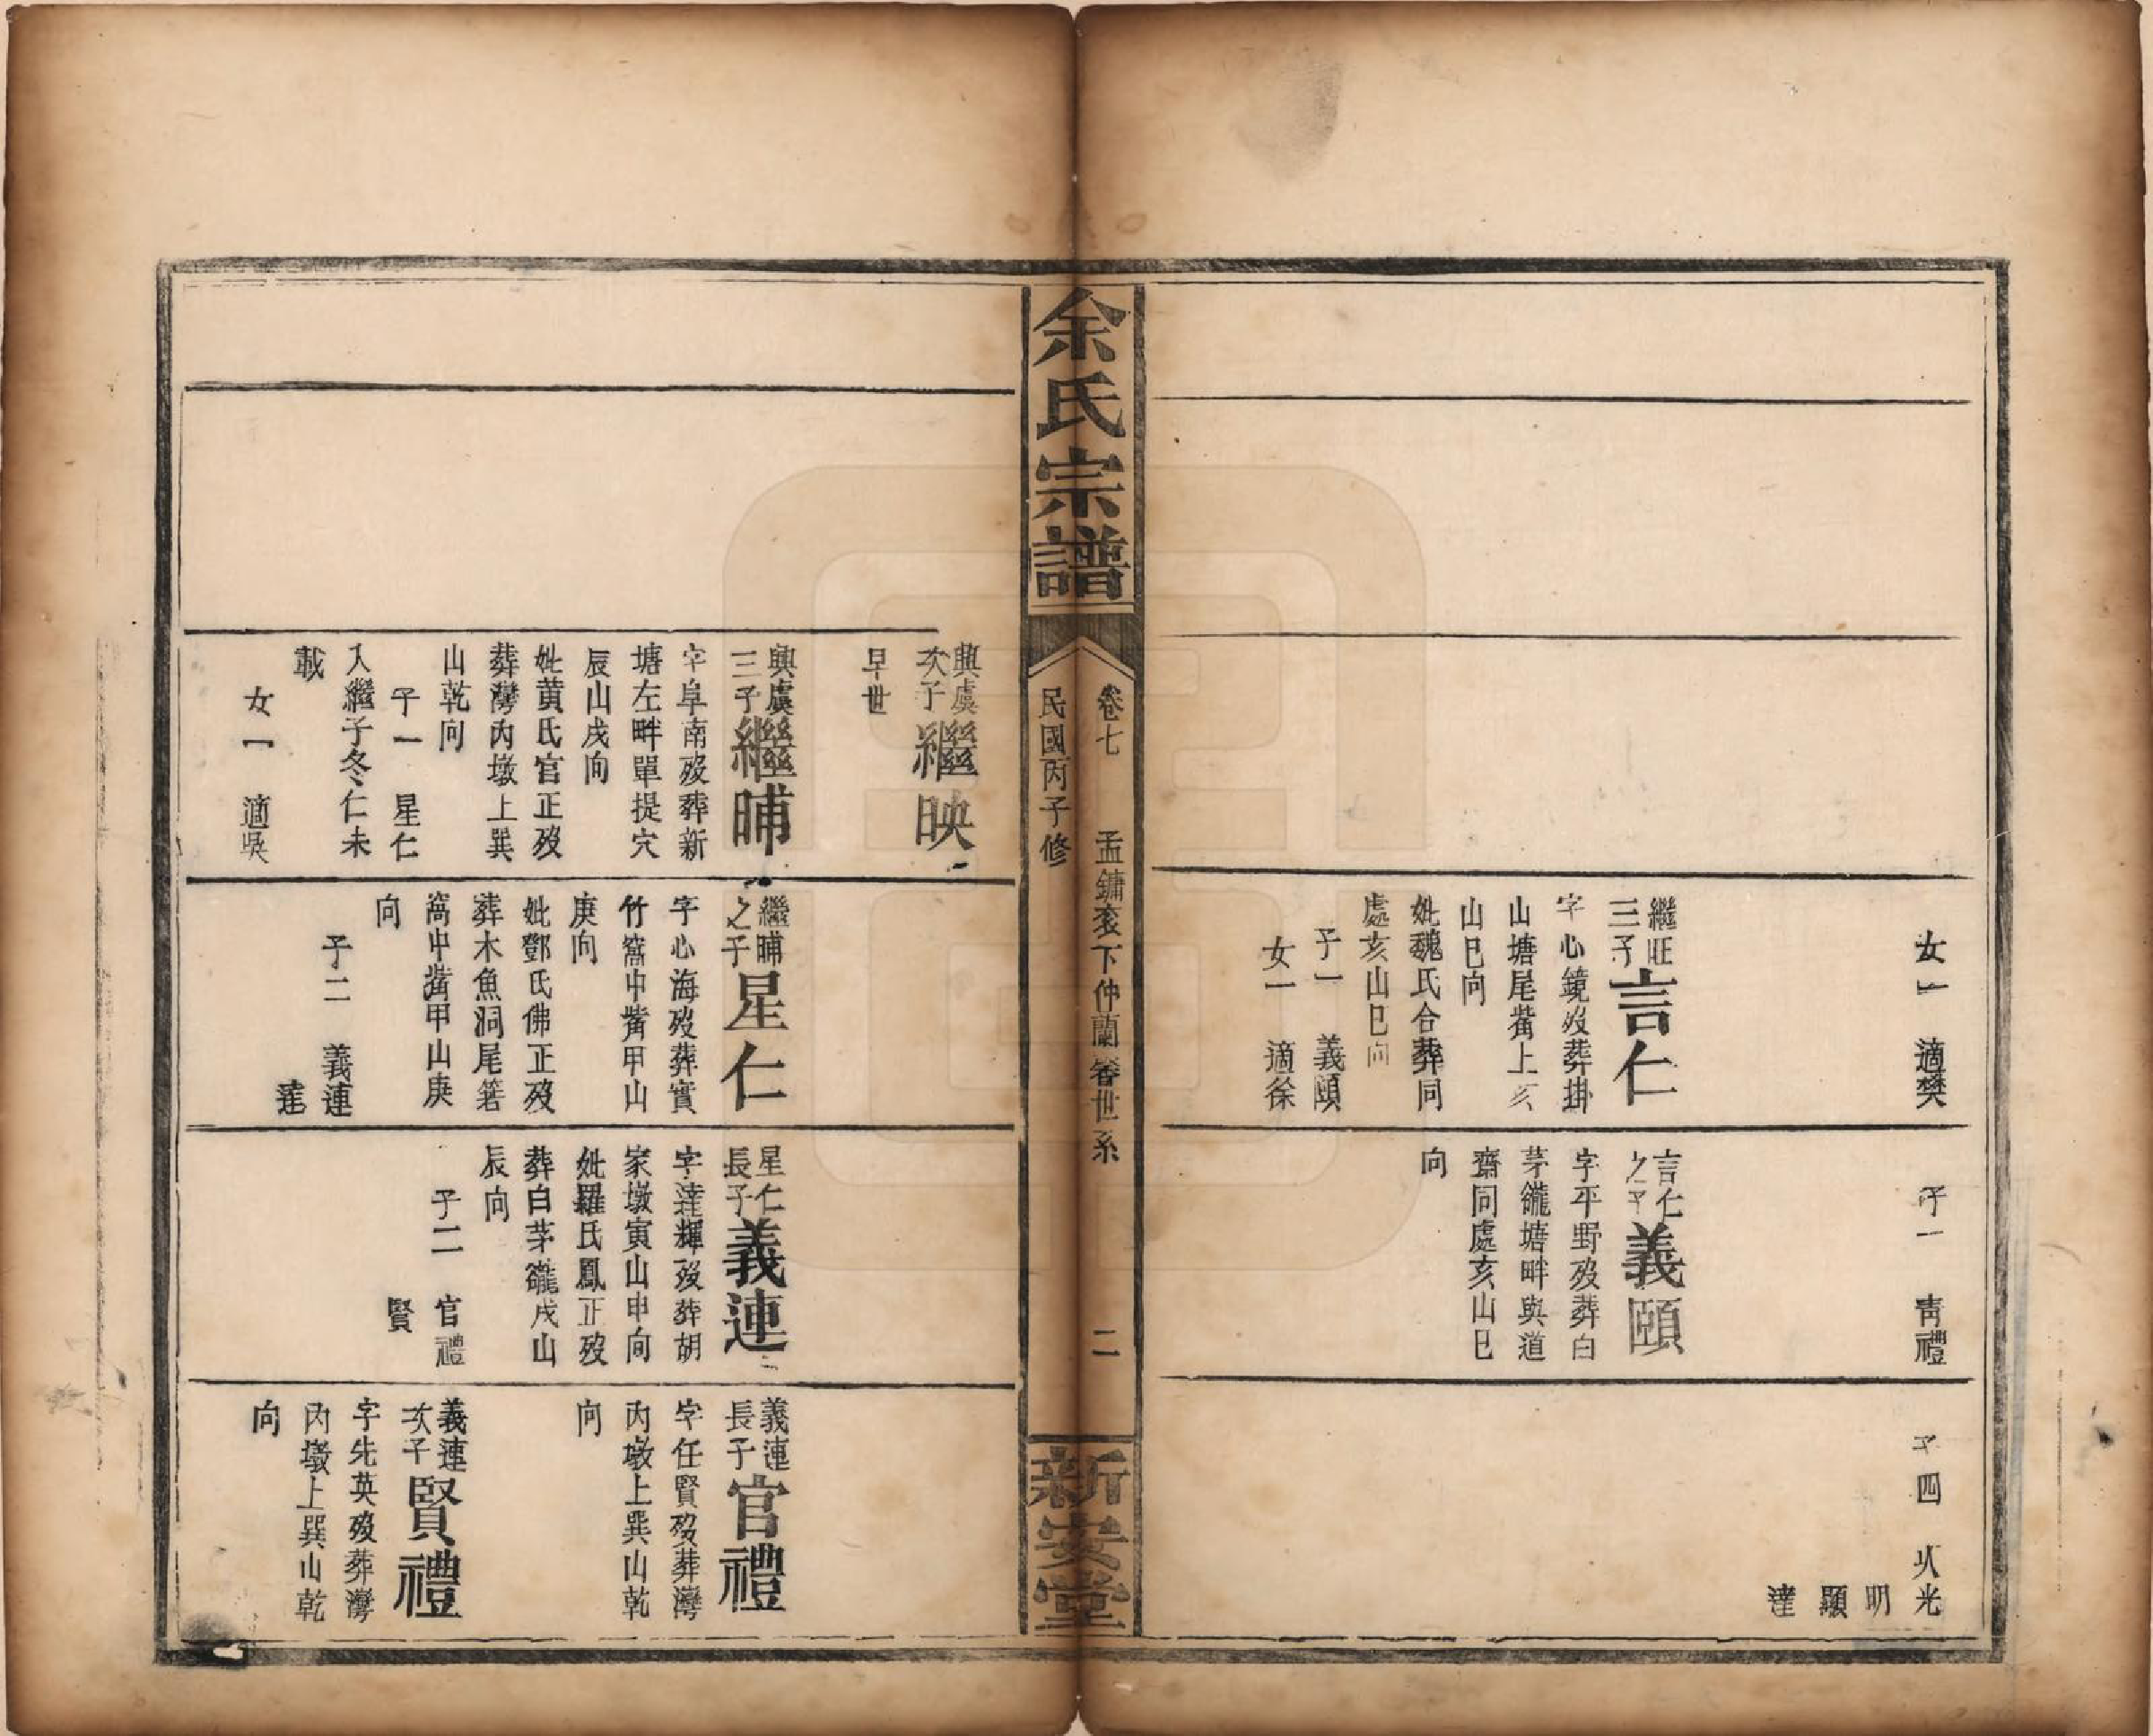 女一　適樊
繼旺
三子
言仁
字心鏡歿葬掛
山塘尾觜上亥
山巳向
妣魏氏合葬同
處亥山巳向
子一　義頤
女一　適徐
子一　靑禮
言仁
之子
義頤
字平野歿葬白
茅巃塘畔與道
齋同處亥山巳
向
子四　火光
明
顯
達
余氏宗譜
卷七　孟鏞衮下仲蘭眷世系　二
民國丙子修
新安堂
興虞
次子
繼映
早世
興虞
三子
繼晡
字阜南歿葬新
塘左畔單提穴
辰山戌向
妣黃氏官正歿
葬灣內墩上巽
山乾向
子一　星仁
入繼子冬仁未
載
女一　適吳
繼晡
之子
星仁
字心海歿葬實
竹窩中觜甲山
庚向
妣鄧氏佛正歿
葬木魚洞尾箬
窩中觜甲山庚
向
子二　義連
達
星仁
長子
義連
字達輝歿葬胡
家墩寅山申向
妣羅氏鳳正歿
葬白茅巃戌山
辰向
子二　官禮
賢
義連
長子
官禮
字任賢歿葬灣
內墩上巽山乾
向
義連
次子
賢禮
字先英歿葬灣
內墩上巽山乾
向